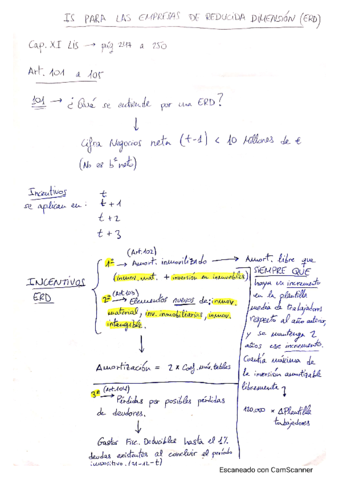 IS PARA LAS EMPRESAS DE REDUCIDA DIMENSIÓN (ERD)
Cap. XI LIS → pág 247 a 250
Art. 101 a 105
101 → ¿Qué se entiende por una ERD?
↓
Cifra Negocios neta (t-1) < 10 Millones de €
(No es bº net)
Incentivos
se aplican en: t
t + 1
t + 2
t + 3
INCENTIVOS
ERD
(Art. 102)
1º → Amort. inmovilizado → Amort. libre que
(inmov. mat. + inversión en inmuebles)
(Art. 103)
2º → Elementos nuevos de: inmov.
material, inv. inmobiliarias, inmov.
intangible.
↓
Amortización = 2 * Coef. máx. tablas
SIEMPRE QUE
haya un incremento
en la plantilla
media de trabajadores
respecto al año anterior,
y se mantenga 2
años ese incremento.
Cuantía máxima de
la inversión amortizable
libremente
120.000 × ΔPlantilla
trabajadores
3º (Art. 104)
→ Pérdidas por posibles pérdidas
de deudores.
↓
Gastos Fisc. Deducibles hasta el 1%
deudas existentes al concluir el período
impositivo (31-12-t)
Escaneado con CamScanner